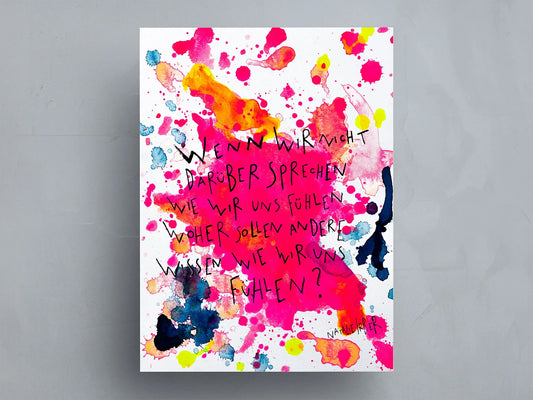 WENN WIR NICHT
DARÜBER SPRECHEN
WIE WIR UNS FÜHLEN
WOHER SOLLEN ANDERE
WISSEN WIE WIR UNS
FÜHLEN?